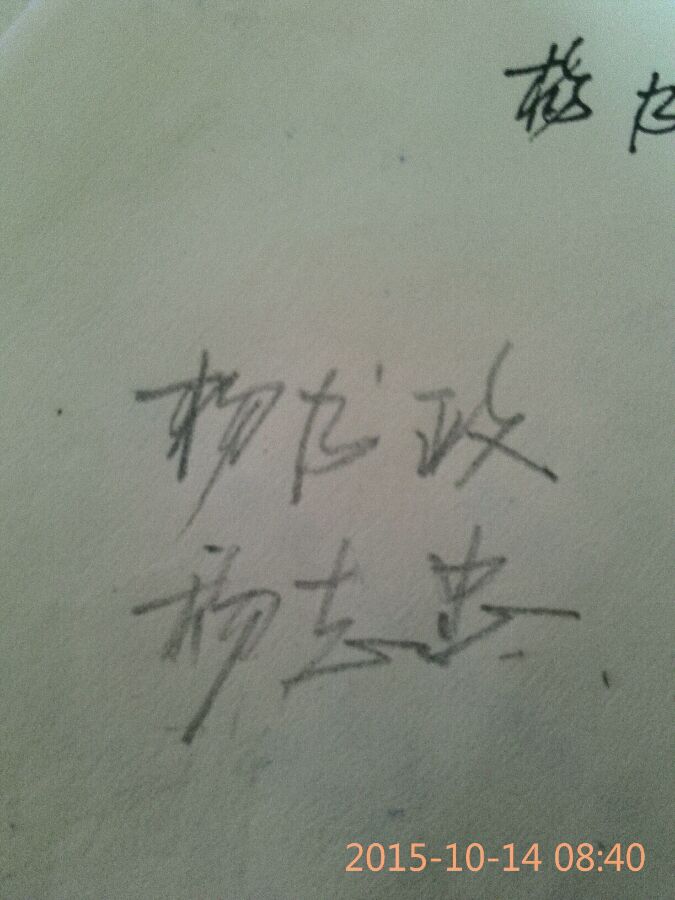 杨龙
杨龙政
杨志忠
2015-10-14 08:40